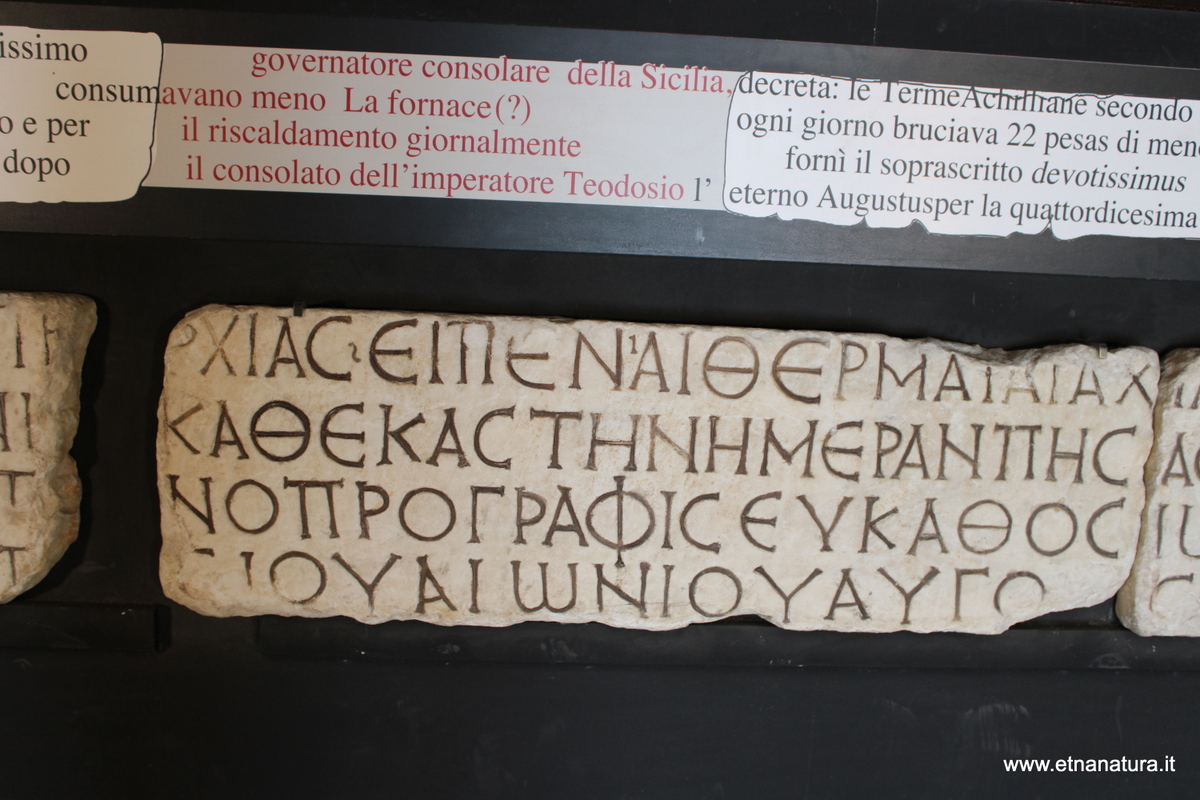 issimo
consumavano meno La fornace(?)
o e per
il riscaldamento giornalmente
dopo
il consolato dell'imperatore Teodosio l'
governatore consolare della Sicilia,
decreta: le TermeAchilliane secondo
ogni giorno bruciava 22 pesas di men
fornì il soprascritto devotissimus
eterno Augustusper la quattordicesima
ΧΙΑϹ ΕΙΠΕΝ ΑΙ ΘΕΡΜΑΙ ΑΙ ΑΧ
ΚΑΘΕΚΑϹΤΗΝΗΜΕΡΑΝΠΗϹ
ΝΟΠΡΟΓΡΑΦΙϹΕΥΚΑΘΟϹ
ΙΟΥΑΙωΝΙΟΥΑΥΓΟ
www.etnanatura.it